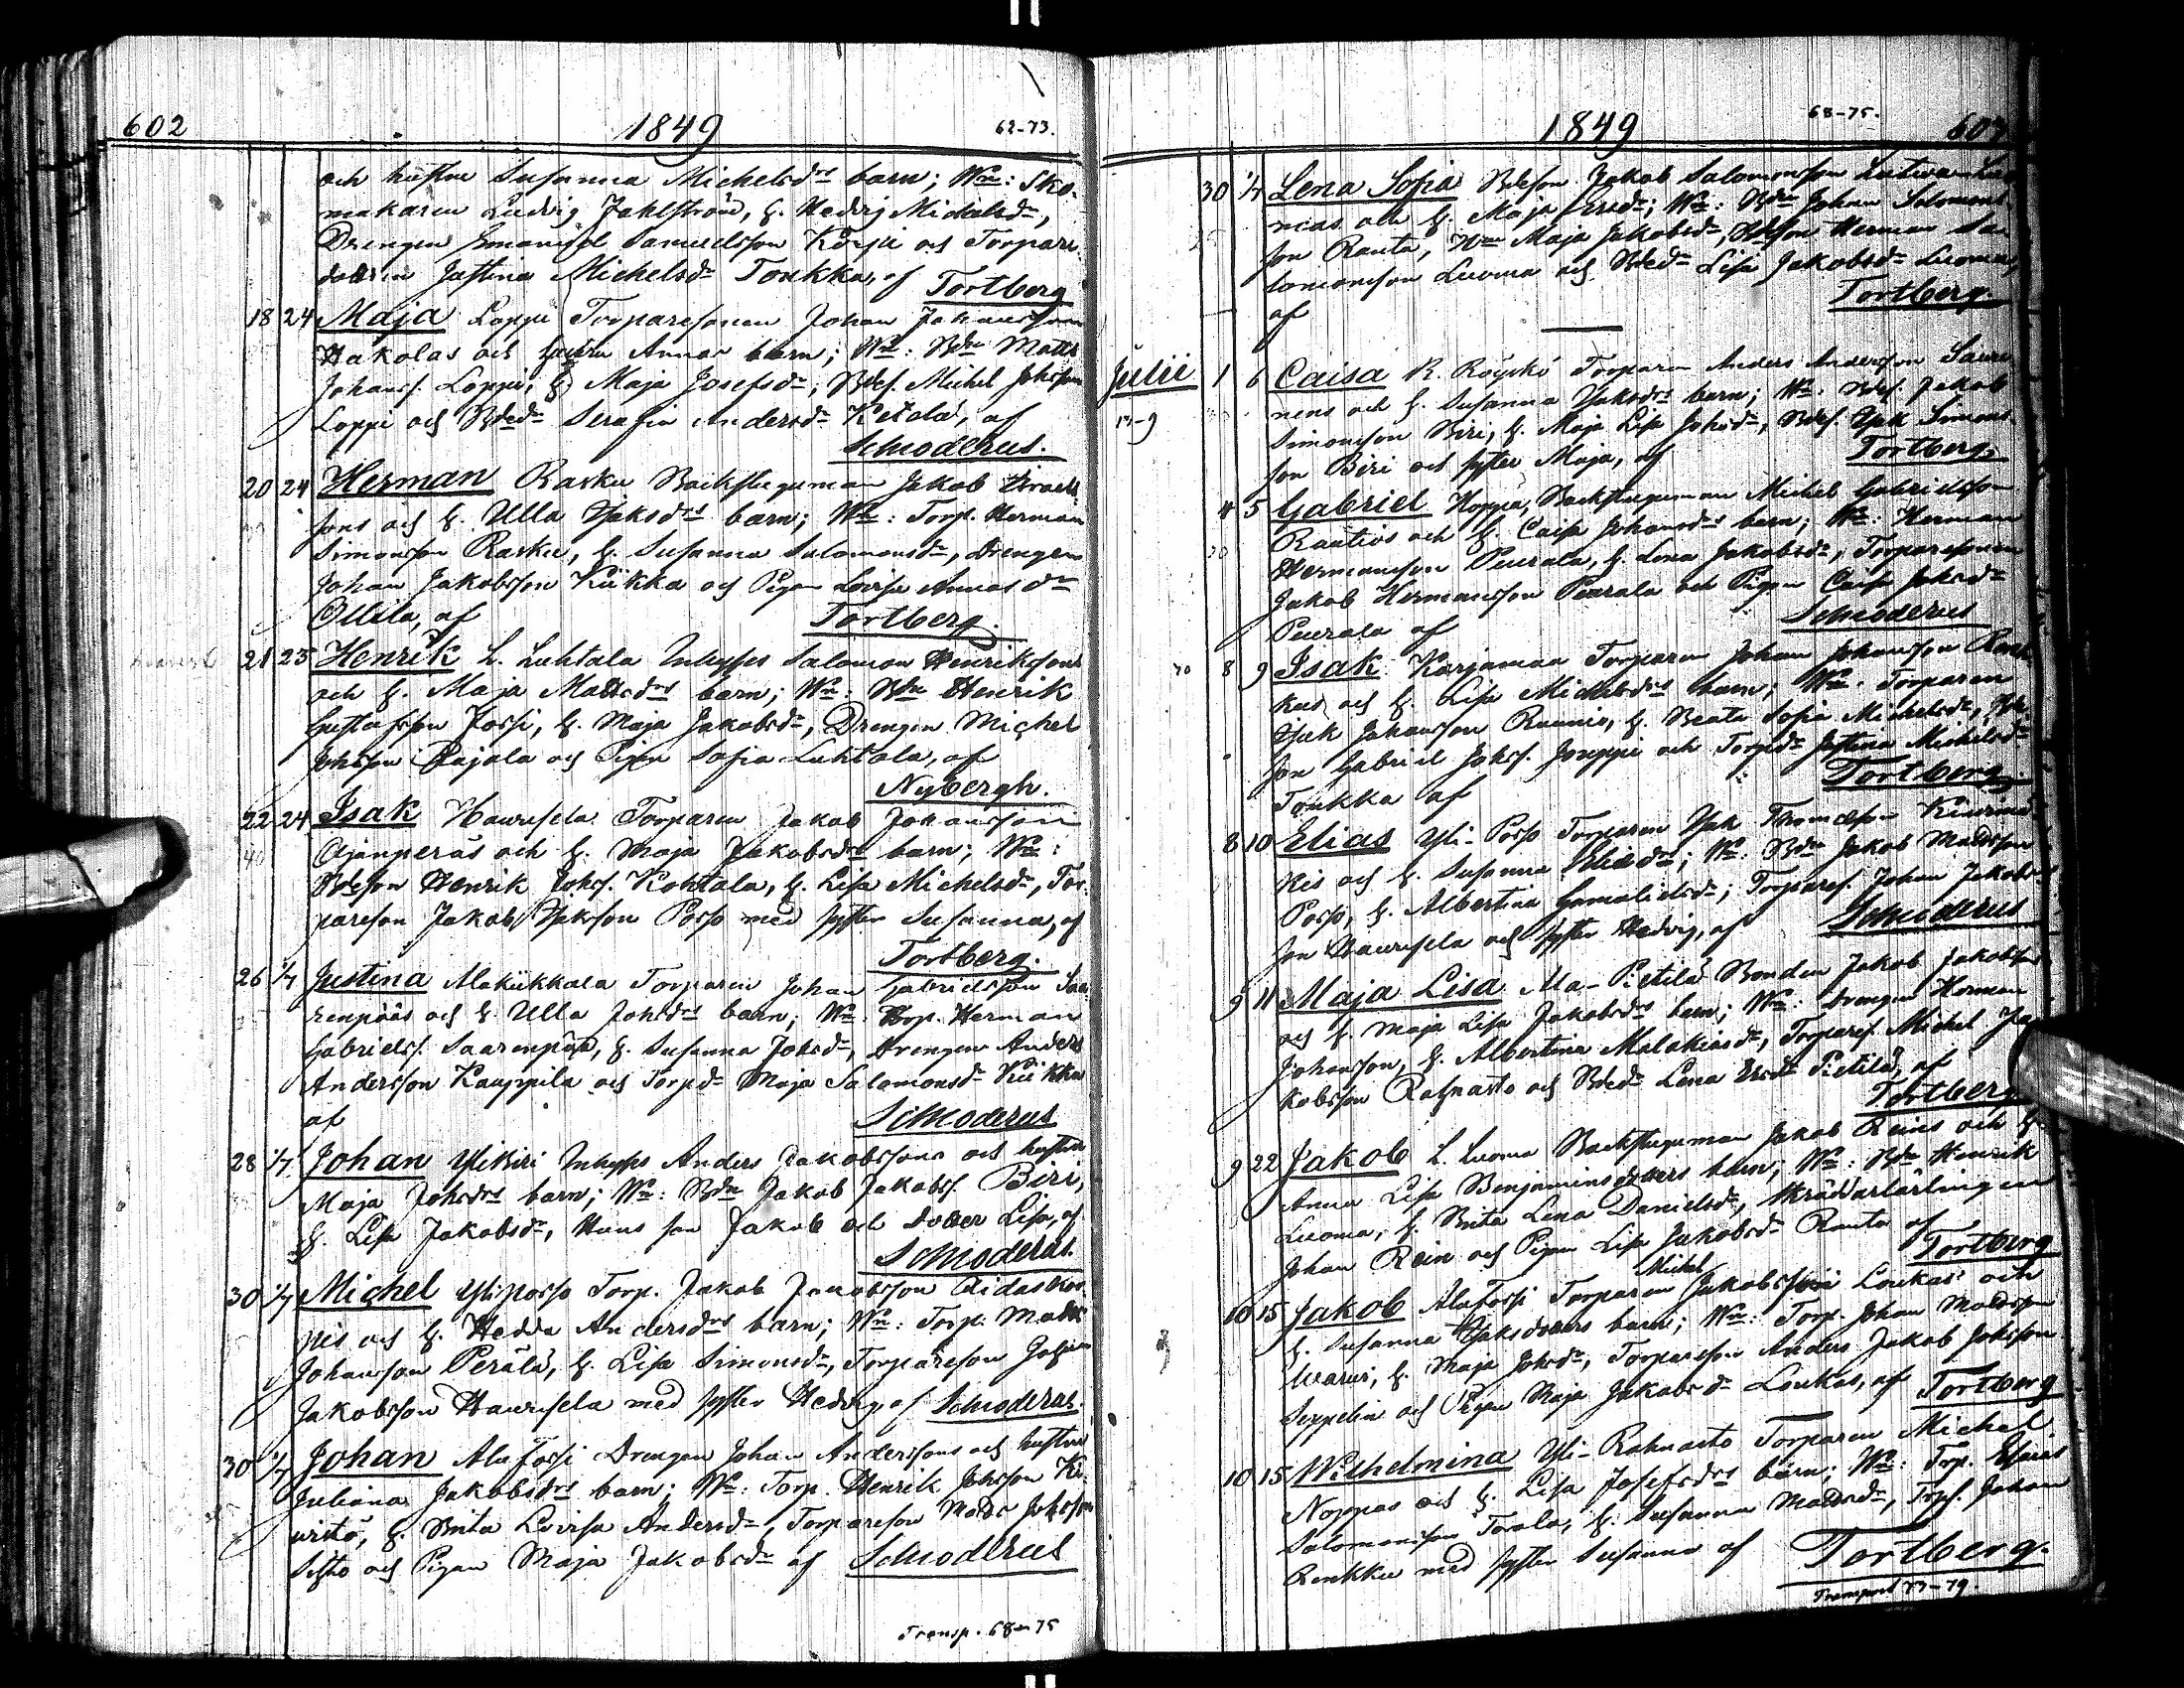 602 1849 62-73.
och hustru Susanna Michelsdrs barn; Wn: Sko-
makaren Ludvig Jahlström, h. Hedvig Michelsdr,
Drengen Emanuel Samuelsson Körpi och Torpare-
dottren Justina Michelsdr Toukka, af Tortberg
18 24 Maja Loppi Torparesonen Johan Johansson
Hakolas och hustru Annas barn; Wn: Bdn Matts
Johanss. Loppi, h. Maja Josefsdr; Bdes. Michel Johsson
Loppi och Bdedr Serafia Andersdr Ketola, af
Schoderus.
20 24 Herman Rasku Backstuguman Jakob Israels
sons och h. Ulla Isaksdrs barn; Wn: Torp. Herman
Simonsson Rasku, h. Susanna Salomonsdr, Drengen
Johan Jakobsson Kükka och Pigan Lovisa Annasdr
Ollila, af Tortberg.
21 25 Henrik L. Luhtala Inhyses Salomon Henrikssons
och h. Maja Mattsdrs barn; Wn: Bdn Henrik
Gustafsson Fossi, h. Maja Jakobsdr, Drengen Michel
Johsson Rajala och Pigan Sofia Luhtala, af
Nybergh.
22 24 Isak Haurusela Torparen Jakob Johansson
Ojanperäs och h. Maja Jakobsdrs barn; Wn:
Bdeson Henrik Johss. Kohtala, h. Lisa Michelsdr, Tor-
pareson Jakob Isaksson Posso med syster Susanna, af
Tortberg.
26 1/7 Justina Alakükkala Torparen Johan Gabrielsson Saa-
renpääs och h. Ulla Johsdrs barn; Wn: Torp. Herman
Gabrielss. Saarenpää, h. Susanna Johsdr, Drengen Anders
Andersson Kauppila och Torpdr Maja Salomonsdr Kükka
af Schoderus
28 1/7 Johan Ylikiri Inhyses Anders Jakobssons och hustru
Maja Johsdrs barn; Wn: Bdn Jakob Jakobss. Biri,
h. Lisa Jakobsdr, Hans son Jakob och dotter Lisa, af
Schoderus.
30 1/7 Michel Yliposso Torp. Jakob Jakobsson Aidaskos-
pis och h. Hedda Andersdrs barn; Wn: Torp. Matts
Johansson Perälä, h. Lisa Simonsdr, Torpareson
Jakobsson Haurusela med syster Hedvig af Schoderus.
30 1/7 Johan Alafossi Drengen Johan Anderssons och hustru
Juliana Jakobsdrs barn; Wn: Torp. Henrik Johsson Ki-
wistö, h. Brita Lovisa Andersdr, Torpareson Matts Johsson
och Pigan Maja Jakobsdr af Schoderus
Transp. 68-75
1849 68-75. 603
30 1/7 Lena Sofia Bdeson Jakob Salomonsson
och h. Maja Ersdr; Wn: Bdn Johan Salomons-
son Ranta, Hu Maja Jakobsdr, Bdeson Herman Sa-
lomonsson Luoma och Bdedr Lisa Jakobsdr Luoma,
af Tortberg.
Julii 1 6 Caisa R. Röyskö Torparen Anders Andersson Saari-
nens och h. Susanna Isaksdrs barn; Wn: Bdes. Jakob
Simonsson Biri, h. Maja Lisa Johsdr, Bdes. Isak Simons-
son Biri och syster Maja, af Tortberg.
4 5 Gabriel Hoppa, Backstuguman Michel Gabrielsson
Rautios och h. Caisa Johansdrs barn; Wn: Herman
Hermansson Peurala, h. Lena Jakobsdr, Torparesonen
Jakob Hermansson Peurala och Pigan Caisa Johsdr
Peurala af Schoderus
8 9 Isak Karjamaa Torparen Johan Johansson
kas och h. Lisa Michelsdrs barn; Wn: Torparen
Isak Johansson Raunio, h. Beata Sofia Michelsdr,
son Gabriel Johss. Jouppi och Torpdr Justina Michelsdr
Toukka af Tortberg.
8 10 Elias Yli-Posso Torparen Isak Thomasson Kiurun-
kis och h. Susanna Eliædrs; Wn: Bdn Jakob Mattsson
Posso, h. Albertina Gamalielsdr; Torpares. Johan Jakobs-
son Haurusela och syster Hedvig, af Schoderus
9 11 Maja Lisa Ala-Pietilä Bonden Jakob Jakobsson
och h. Maja Lisa Jakobsdrs barn; Wn: Drengen Herman
Johansson, h. Albertina Malakiasdr, Torpares. Michel Ja-
kobsson Rahnasto och Bdedr Lena Ersdr Pietilä, af
Tortberg
9 22 Jakob L. Luoma Backstuguman Jakob Reins och h.
Anna Lisa Benjaminsdotters barn; Wn: Bdn Henrik
Luoma, h. Brita Lena Danielsdr, Skräddarlärlingen
Johan Rein och Pigan Lisa Jakobsdr Ranta af
Tortberg
10 15 Jakob Alafossi Torparen Michel Jakobsson Loukas och
h. Susanna Isaksdotters barn; Wn: Torp. Johan Mattsson
Waari, h. Maja Johsdr, Torpareson Anders Jakob Johsson
Seppelin och Pigan Maja Jakobsdr Loukas, af Tortberg
10 15 Wilhelmina Yli-Rahnasto Torparen Michel
Noppas och h. Lisa Josefsdrs barn; Wn: Torp.
Salomonsson Torala, h. Susanna Mattsdr, Torps. Johan
Renkku med syster Susanna af Tortberg.
Transport 73-79.